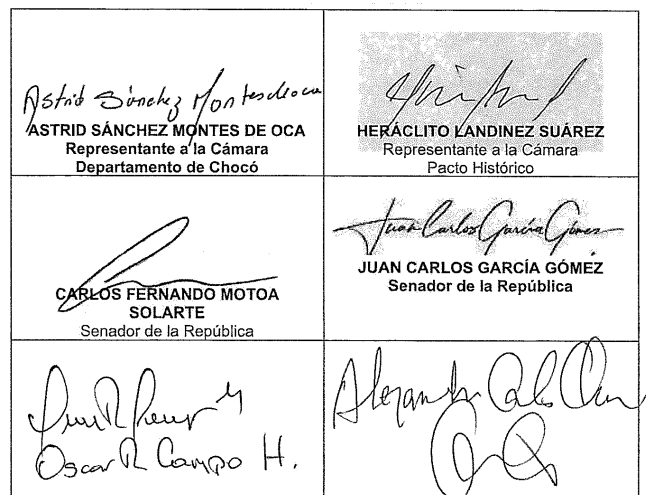 Astrid Sánchez Montesdeoca
ASTRID SÁNCHEZ MONTES DE OCA
Representante a la Cámara
Departamento de Chocó
HERÁCLITO LANDINEZ SUÁREZ
Representante a la Cámara
Pacto Histórico
CARLOS FERNANDO MOTOA
SOLARTE
Senador de la República
Juan Carlos García Gómez
JUAN CARLOS GARCÍA GÓMEZ
Senador de la República
Oscar R Campo H.
Alejandro Carlos